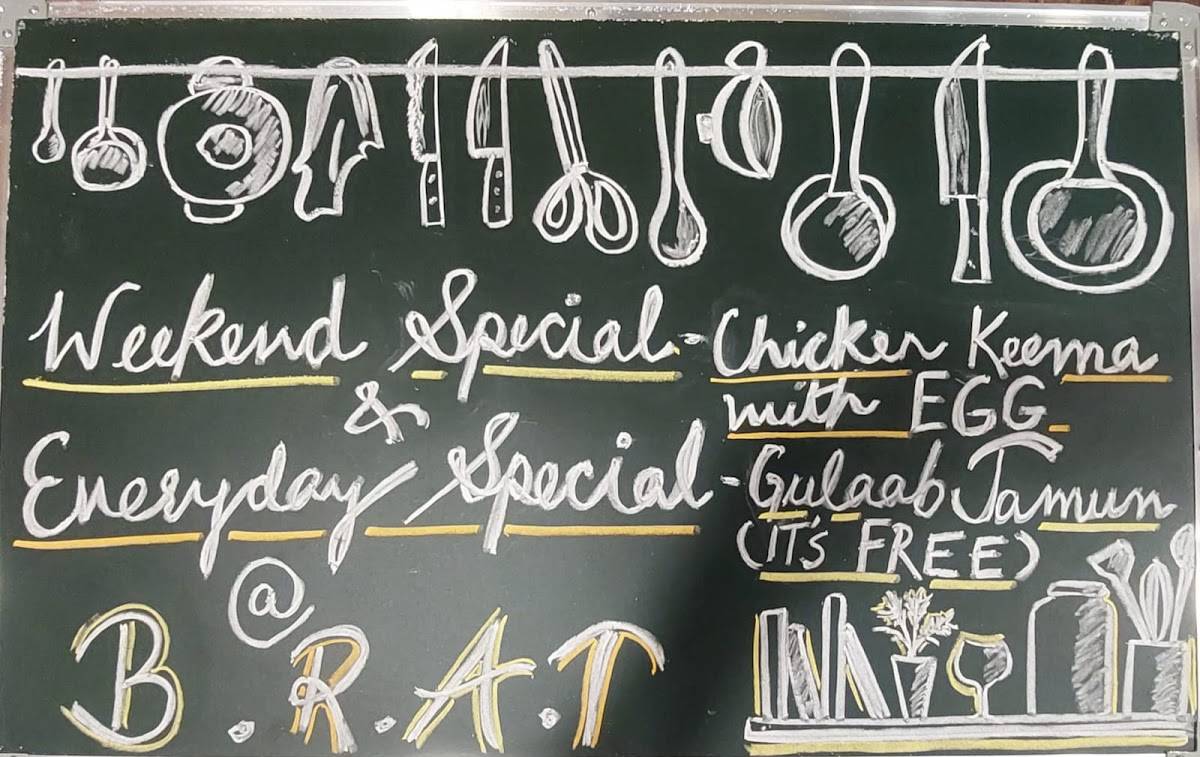 Weekend Special - Chicken Keema
with EGG
&
Everyday Special - Gulaab Jamun
(IT's FREE)
@
B.R.A.T